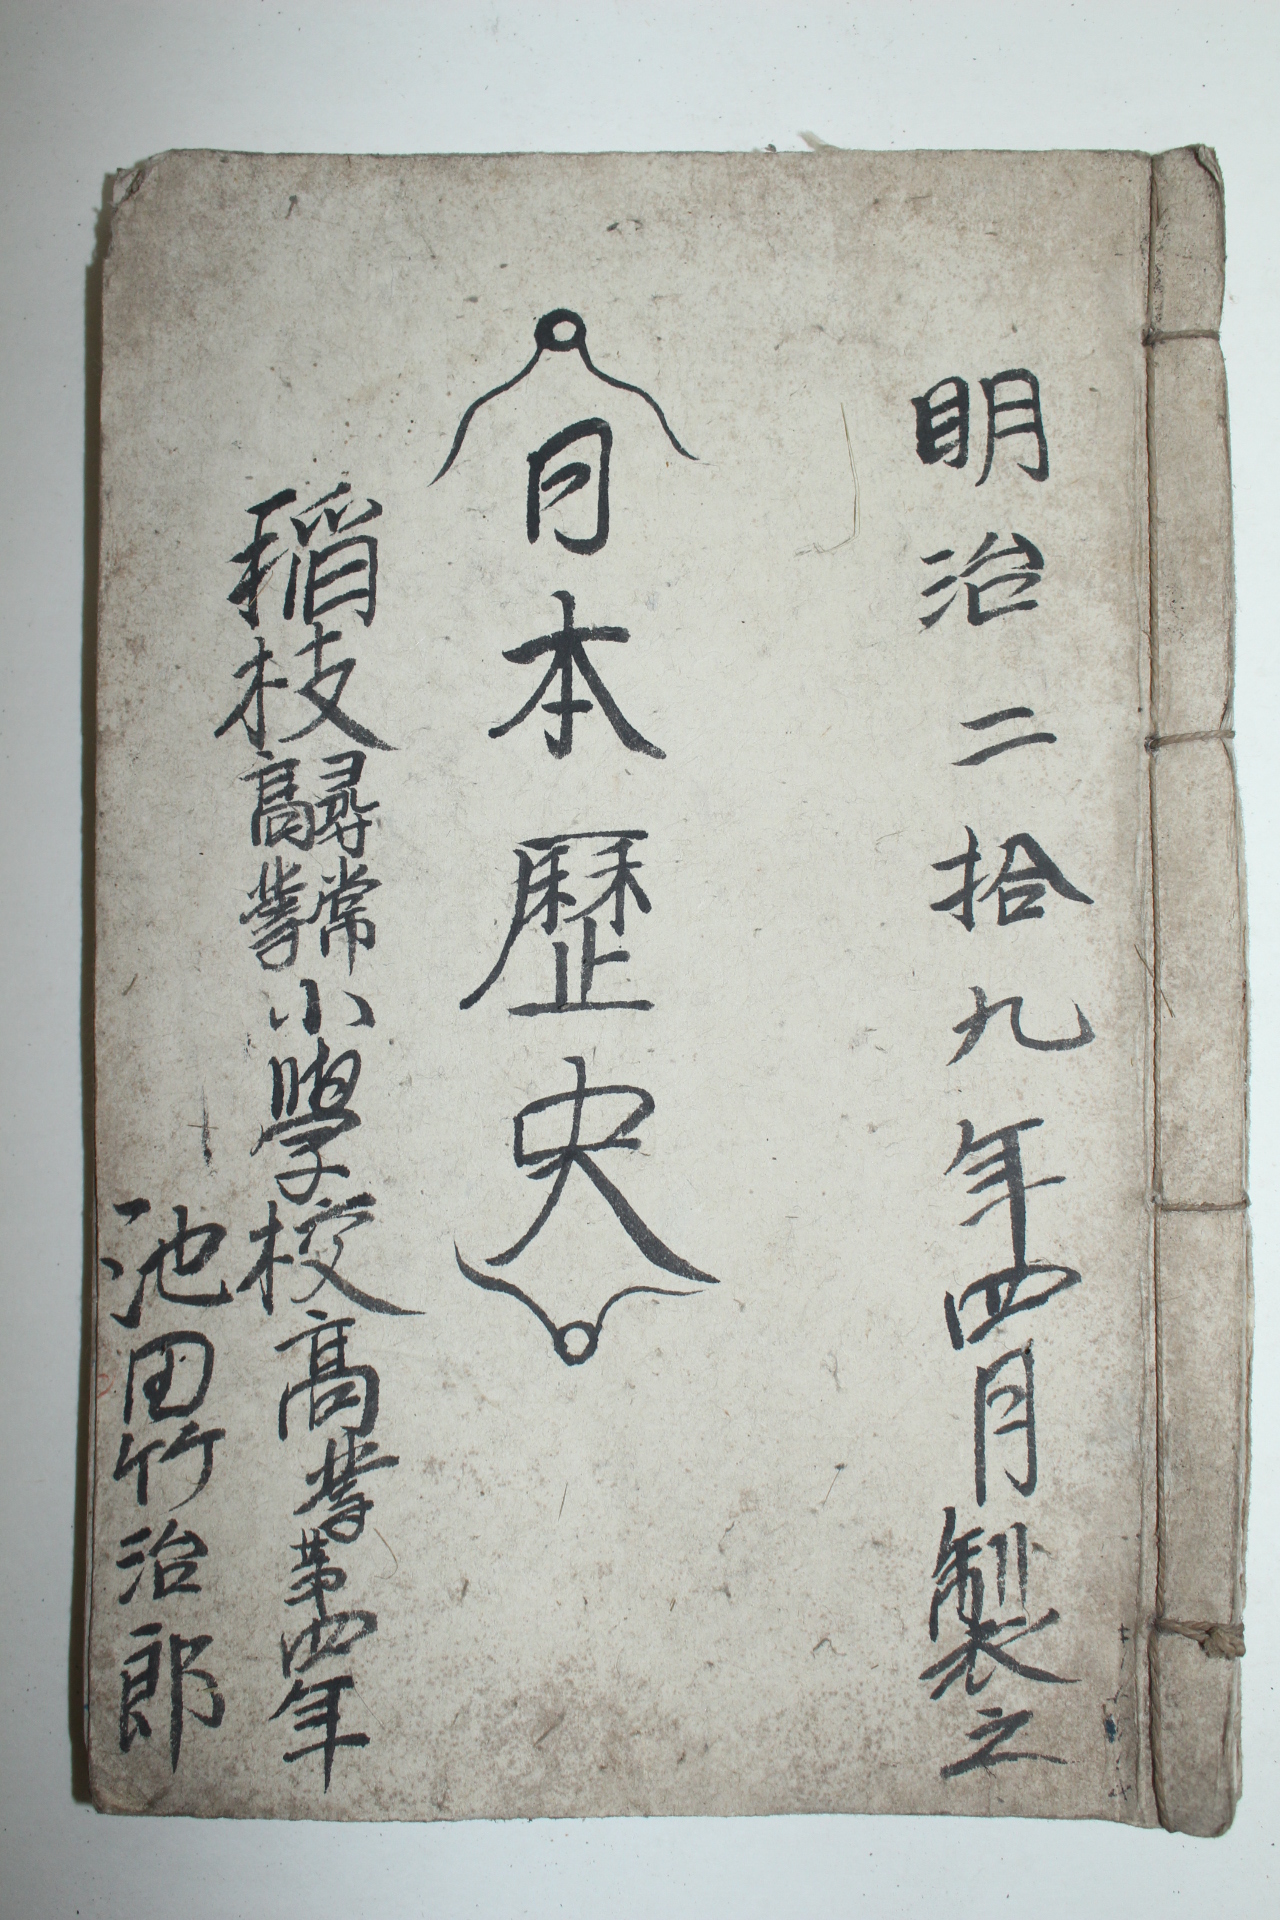 明治二拾九年四月製之
日本歷史
稲枝尋常高等小學校高等第四年
池田竹治郎